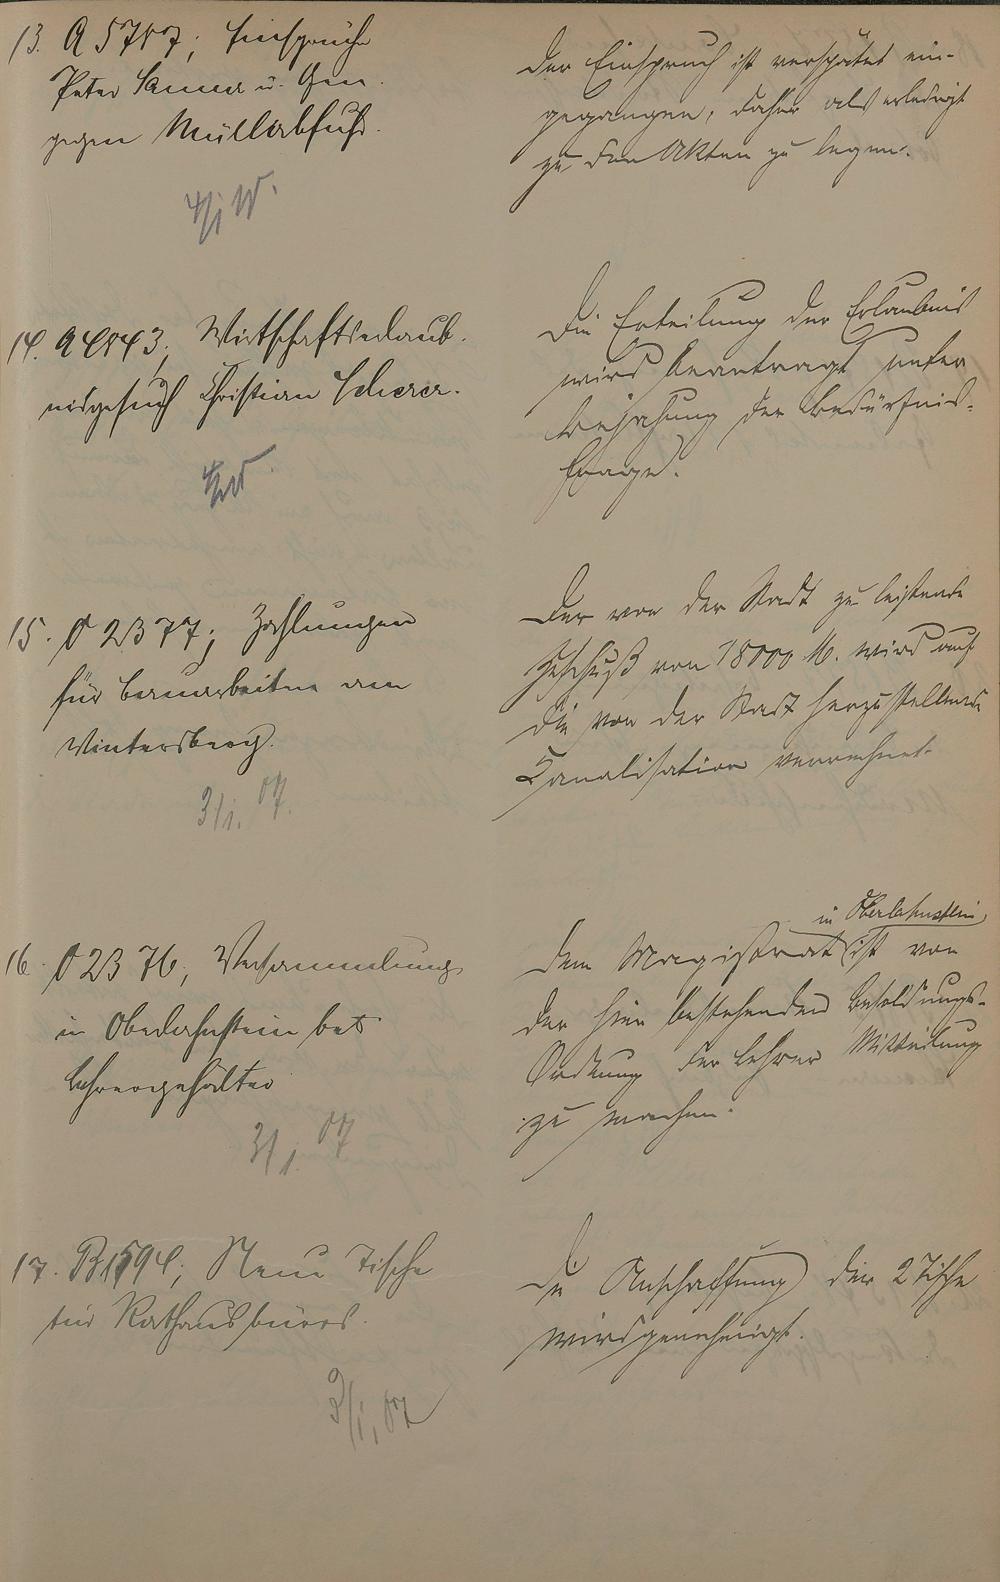 13. A 5787; Einsprüche
Peter u. Gen.
gegen Müllabfuhr.
4/1 W.
Der Einspruch ist verspätet ein-
gegangen, daher als erledigt
zu den Akten zu legen.
14. A 4843; Wirtschaftserlaub-
nisgesuch Christian Scherer.
Die Erteilung der Erlaubnis
wird beantragt unter
Bejahung der Bedürfnis-
frage.
15. O 2377; Zahlungen
für Bauarbeiten am
Wintersberg.
3/1. 07.
Der von der Stadt zu leistende
Zuschuß von 18000 M. wird auf
die von der Stadt herzustellende
Canalisation verrechnet.
16. O 2376; Versammlung
in Oberlahnstein betr.
Lehrergehälter
3/1. 07
in Oberlahnstein
Dem Magistrat ist von
der hier bestehenden Besoldungs-
Ordnung der Lehrer Mitteilung
zu machen.
17. B 1594; Neue Tische
für Rathausbüros.
3/1. 07
Die Anschaffung der 2 Tische
wird genehmigt.